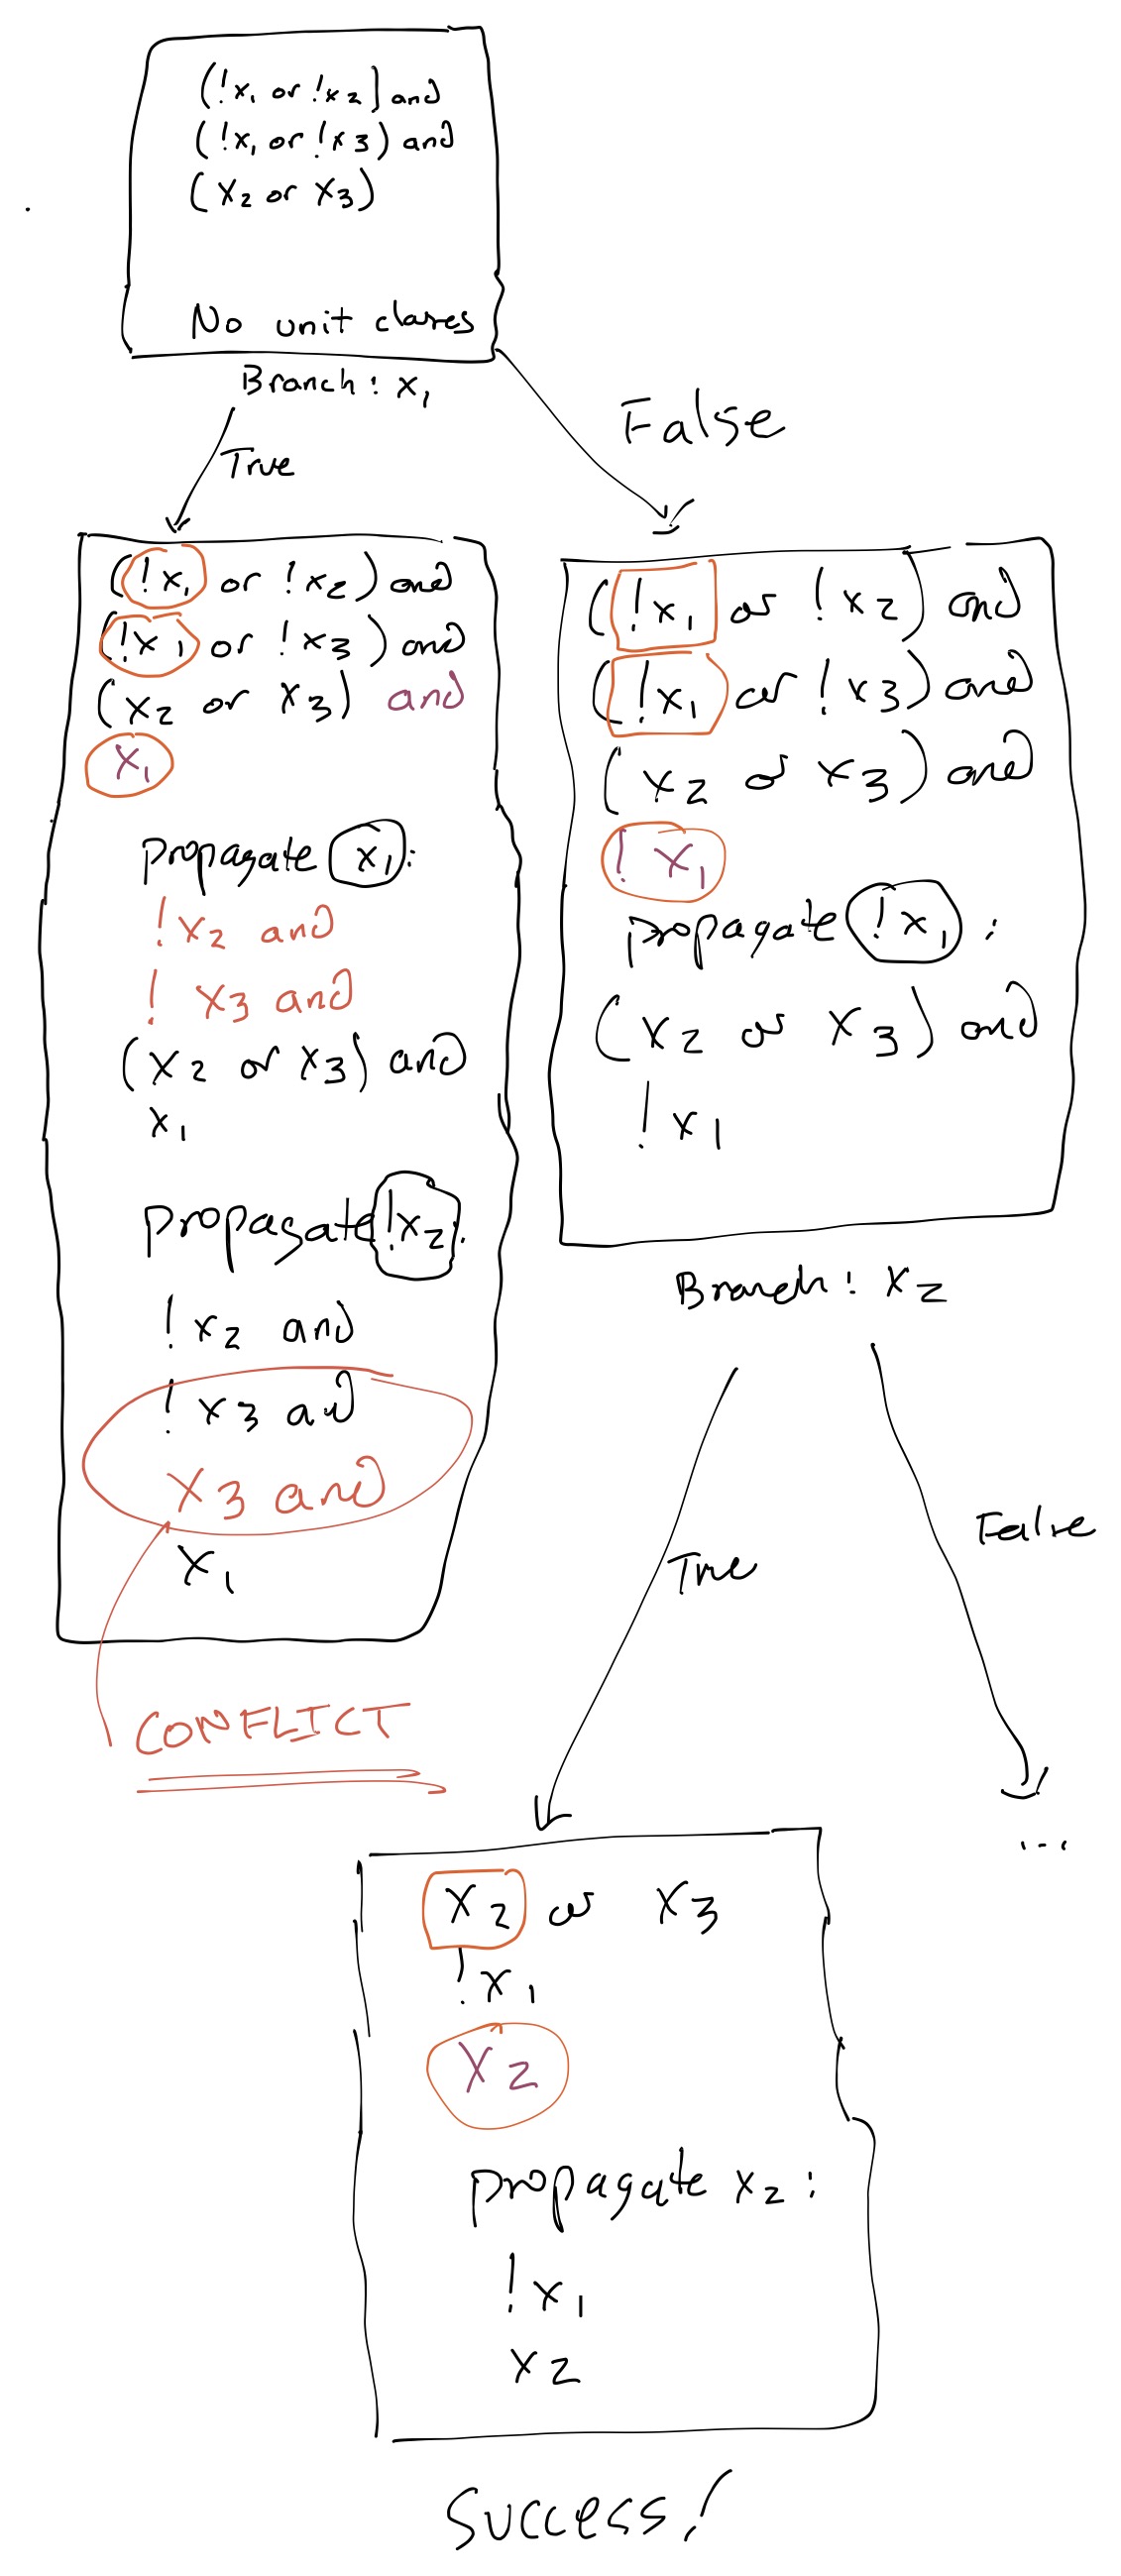 (!x₁ or !x₂) and
(!x₁ or !x₃) and
(x₂ or x₃)
No unit clauses
Branch: x₁
True
False
(!x₁ or !x₂) and
(!x₁ or !x₃) and
(x₂ or x₃) and
x₁
propagate x₁:
!x₂ and
!x₃ and
(x₂ or x₃) and
x₁
propagate !x₂:
!x₂ and
!x₃ and
x₃ and
x₁
CONFLICT
(!x₁ or !x₂) and
(!x₁ or !x₃) and
(x₂ or x₃) and
!x₁
propagate !x₁:
(x₂ or x₃) and
!x₁
Branch: x₂
True
False
...
x₂ or x₃
!x₁
x₂
propagate x₂:
!x₁
x₂
Success!